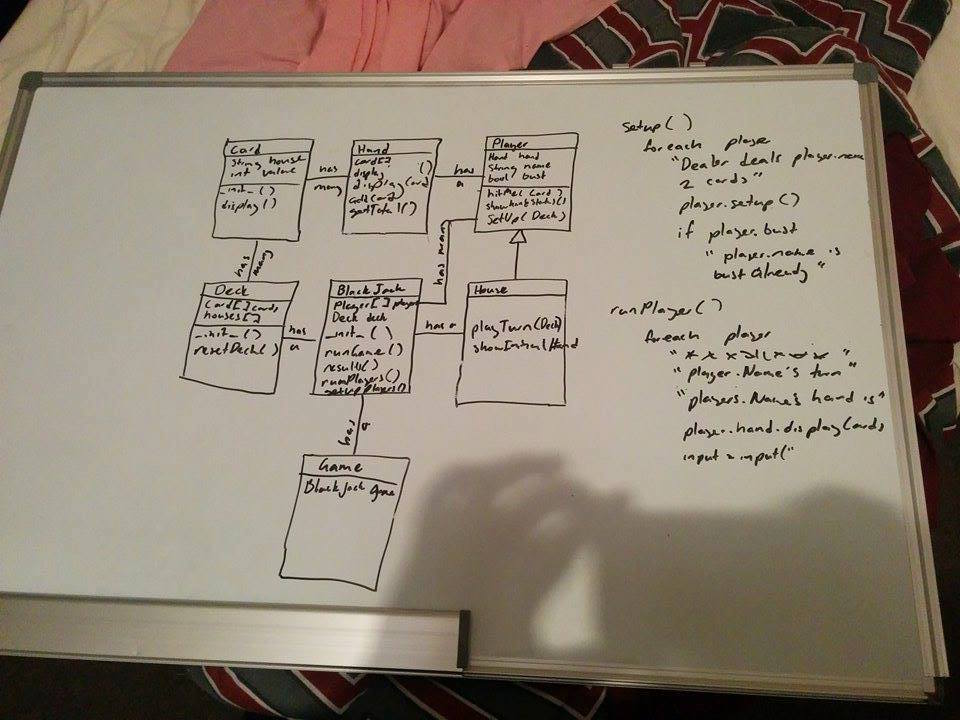 Card
String house
int value
_init_()
display()
has
many
Hand
Card[]
display ()
displayCard
addCard
getTotal()
has
a
Player
Hand hand
String name
bool bust
hitMe(Card)
showHandStatus()
SetUp(Deck)
has
many
has many
Deck
Card[] cards
houses[]
_init_()
resetDeck()
has
a
BlackJack
Player[] player
Deck deck
_init_()
runGame()
results()
runPlayers()
setupPlayers()
has a
House
playTurn(Deck)
showInitialHand
has
a
Game
BlackJack Game
setup()
foreach playe
"Dealer deals player.name
2 cards"
player.setup()
if player.bust
"player.name is
bust already"
runPlayer()
foreach player
"player.Name's turn"
"players.Name's hand is"
player.hand.displayCards
input = input("